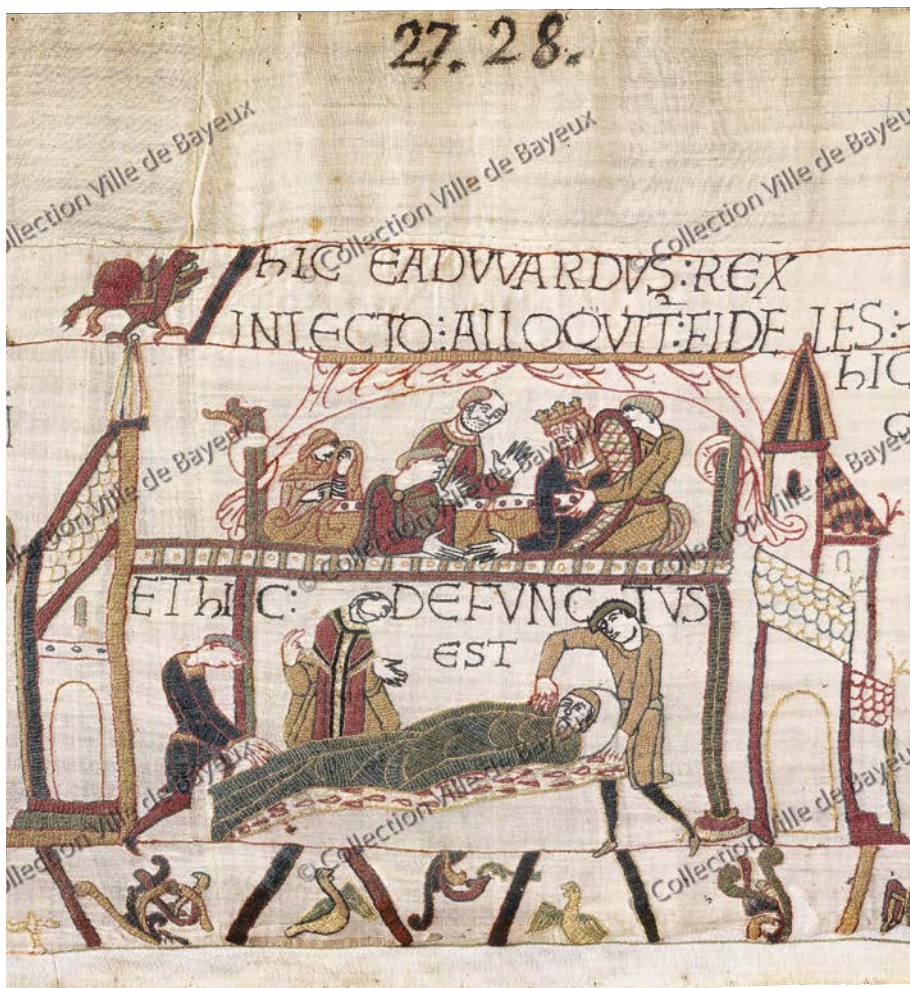 27. 28.
hIC EADVVARDVS: REX
IN LECTO: ALLOQVIT: FIDELES:
hIC
ET hIC: DEFVNCTVS
EST
© Collection Ville de Bayeux